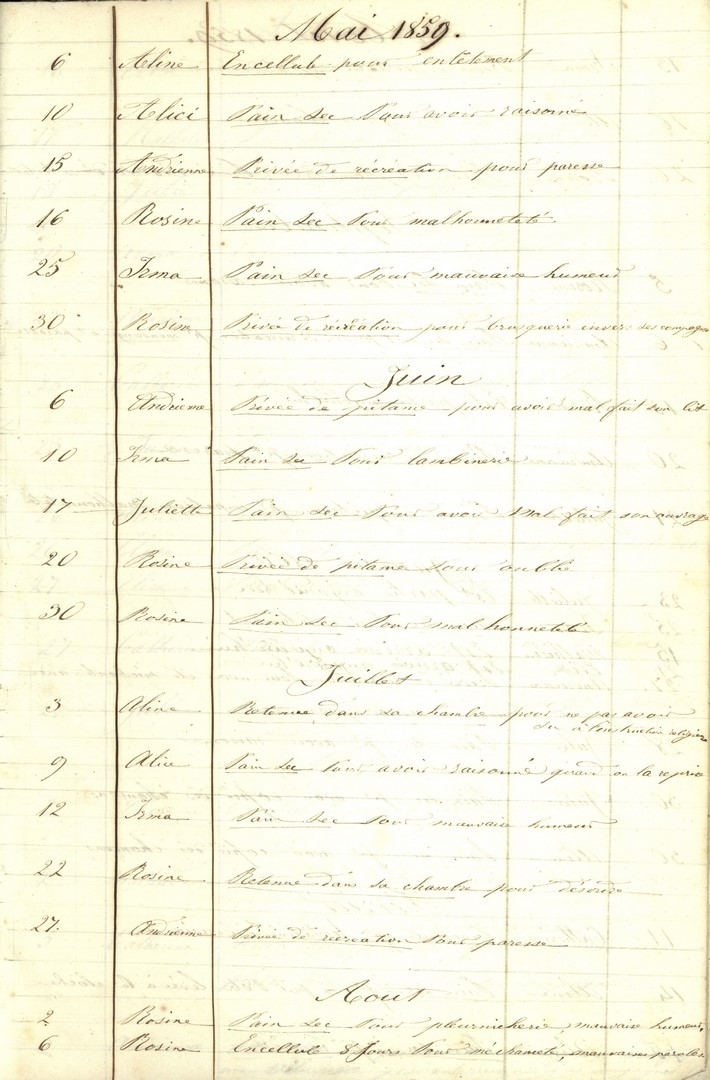 Mai 1859.
6 Aline Encellule pour entêtement
10 Alice Pain sec Pour avoir raisonné
15 Andrienne Privée de récréation pour paresse
16 Rosine Pain sec Pour malhonneteté
25 Irma Pain sec Pour mauvaise humeur
30 Rosine Privée de récréation pour brusquerie envers ses compagnes
Juin
6 Andrienne Privée de pitance pour avoir mal fait son lit
10 Irma Pain sec Pour lambinerie
17 Juliette Pain sec Pour avoir mal fait son ouvrage
20 Rosine Privée de pitance pour oubli
30 Rosine Pain sec Pour malhonneteté
Juillet
3 Aline Retenue dans sa chambre pour ne pas avoir
su l'instruction religieuse
9 Alice Pain sec Pour avoir raisonné quand on la reprise
12 Irma Pain sec Pour mauvaise humeur
22 Rosine Retenue dans sa chambre pour désordre
27. Andrienne Privée de récréation Pour paresse
Aout
2 Rosine Pain sec Pour pleurnicherie, mauvaise humeur,
6 Rosine Encellule 8 Jours Pour méchanceté, mauvaises paroles.